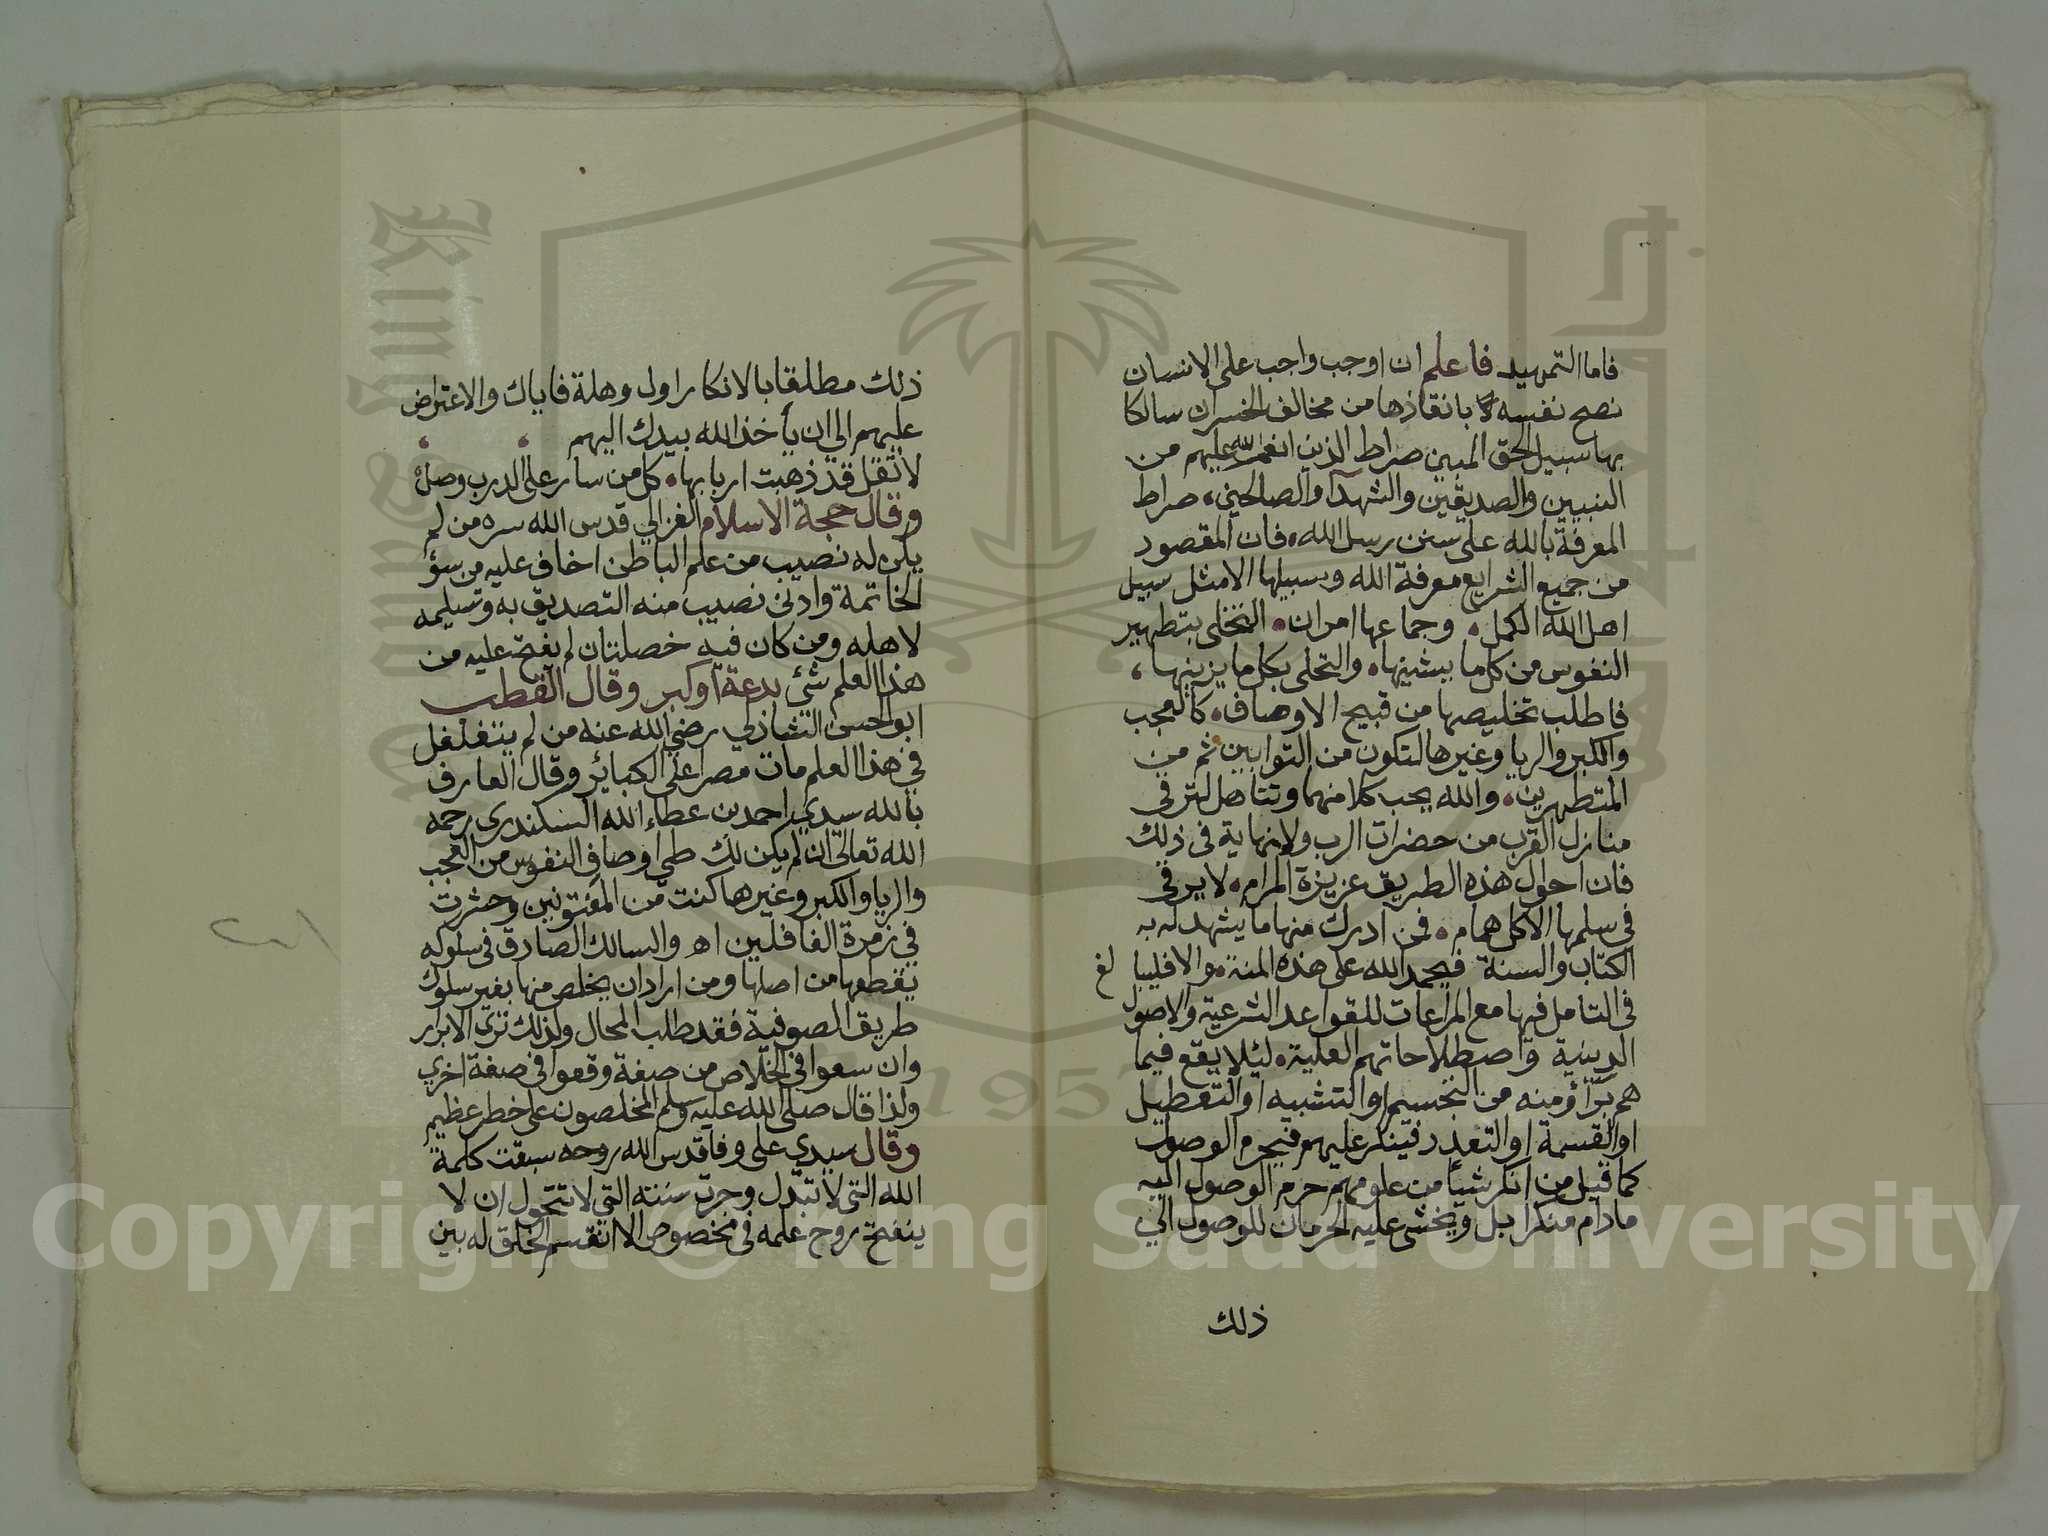 فاما التمهيد فاعلم ان اوجب واجب على الانسان
نصح نفسه بانقاذها من مخالف الخسران سالكا
بها سبيل الحق المبين صراط الذين انعم الله عليهم من
النبيين والصديقين والشهدآ والصالحين، صراط
المعرفة بالله على سنن رسل الله، فان المقصود
من جميع الشرايع معرفة الله وسبيلها الامثل سبيل
اهل الله الكمل، وجماعها امران، التخلي بتطهير
النفوس من كل ما يشينها، والتحلى بكل ما يزينها،
فاطلب تخليصها من قبيح الاوصاف، كالعجب
والكبر والريا وغيرها لتكون من التوابين ثم من
المتطهرين، والله يحب كلا منهما وتتاهل لترقى
منازل القرب من حضرات الرب ولا نهاية فى ذلك
فان احوال هذه الطريق عزيزة المرام، لا يرقى
فى سلمها الا كل همام، فمن ادرك منها ما يشهد له به
الكتاب والسنة فيحمد الله على هذه المنة، والا فليبالغ
فى التامل فيها مع المراعات للقواعد الشرعية والاصول
الدينية واصطلاحاتهم العلية، ليلا يقع فيما
هم برآؤ منه من التجسيم او التشبيه او التعطيل
او القسمة او التعدد فينكر عليهم فيحرم الوصول
كما قيل من انكر شيأ من علومهم حرم الوصول اليه
مادام منكرا بل ويخشى عليه الحرمان للوصول الي
ذلك
ذلك مطلقا بالانكار اول وهلة فاياك والاعتراض
عليهم الى ان يأخذ الله بيدك اليهم
لا تقل قد ذهبت اربابها، كل من سار على الدرب وصل
وقال حجة الاسلام الغزالي قدس الله سره من لم
يكن له نصيب من علم الباطن اخاف عليه من سؤ
الخاتمة وادنى نصيب منه التصديق به وتسليمه
لاهله ومن كان فيه خصلتان لم يفتح عليه من
هذا العلم شئ بدعة او كبر وقال القطب
ابو الحسن الشاذلي رضي الله عنه من لم يتغلغل
في هذا العلم مات مصرا على الكبائر وقال العارف
بالله سيدي احمد بن عطاء الله السكندري رحمه
الله تعالى ان لم يكن لك طي اوصاف النفوس من العجب
والريا والكبر وغيرها كنت من المفتونين وحشرت
في زمرة الغافلين اه والسالك الصادق فى سلوكه
يقطعها من اصلها ومن اراد ان يخلص منها بغير سلوك
طريق الصوفية فقد طلب المحال ولذلك ترى الابرار
وان سعوا فى الخلاص من صفة وقعوا فى صفة اخرى
ولذا قال صلى الله عليه وسلم المخلصون على خطر عظيم
وقال سيدي على وفا قدس الله روحه سبقت كلمة
الله التى لا تتبدل وجرت سنته التى لا تتحول ان لا
ينفتح روح علمه فى مخصوص الا انقسم الخلق له بين
Copyright © King Saud University
King Saud
1957